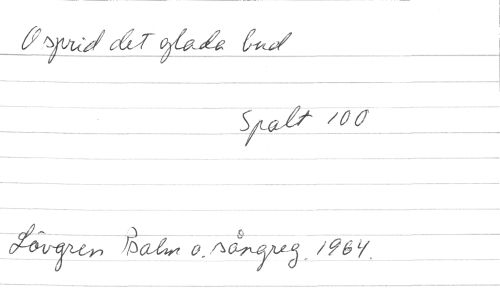 O sprid det glada bud
Spalt 100
Lövgren Psalm o. sångreg. 1964.